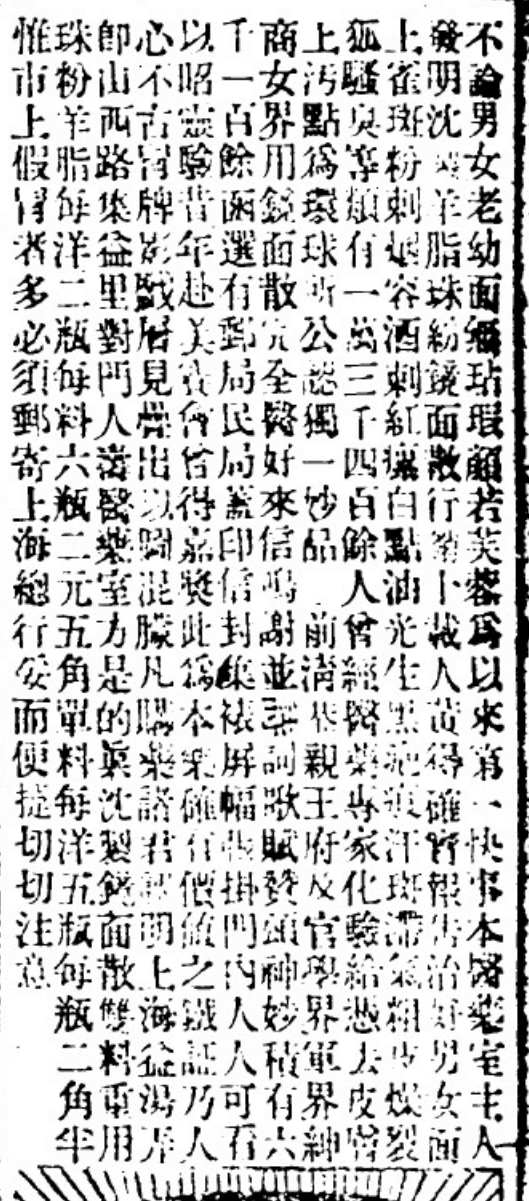 不論男女老幼面無玷瑕顏若芙蓉為以來第一快事本醫藥室主人
發明沈製羊脂珠粉鏡面散行銷十載人苗得確實報告治好男女面
上雀斑粉刺烟容酒刺紅痣白點油光生黑疤痕汗斑滯氣粗皮燥裂
狐騷臭等類有一萬三千四百餘人曾經醫藥專家化驗給憑去皮膚
上汚點為環球所公認獨一妙品 前清恭親王府及官學界軍界紳
商女界用鏡面散完全醫好來信鳴謝並詩詞歌賦贊頌神妙積有六
千一百餘函選有郵局民局蓋印信封集裱屏幅張掛門內人人可看
以昭靈驗昔年赴美賽會曾得嘉獎此為本藥確有價值之鐵証乃人
心不古冒牌影戤層見疊出以圖混朦凡購藥諸君認明上海益湯弄
卽山西路集益里對門人壽醫藥室方是的眞沈製鏡面散雙料重用
珠粉羊脂每洋二瓶每料六瓶二元五角單料每洋五瓶每瓶二角半
惟市上假冒者多必須郵寄上海總行妥而便捷切切注意